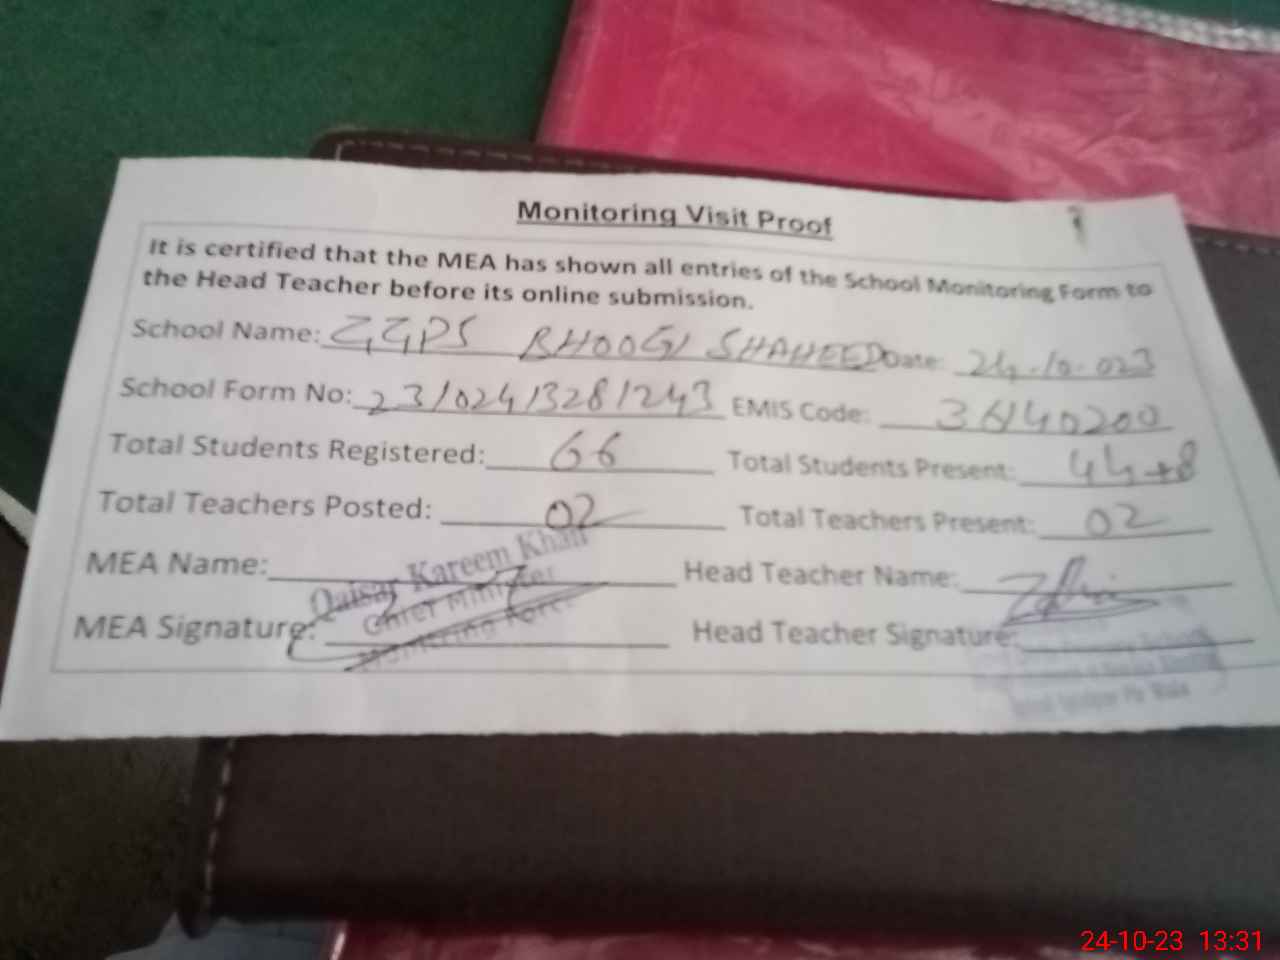 Monitoring Visit Proof
It is certified that the MEA has shown all entries of the School Monitoring Form to
the Head Teacher before its online submission.
School Name: GGPS BHOOGI SHAHEED Date: 24.10.023
School Form No: 23102413281243 EMIS Code: 36140200
Total Students Registered: 66 Total Students Present: 44+8
Total Teachers Posted: 02 Total Teachers Present: 02
MEA Name: Head Teacher Name:
Qaisar Kareem Khan
Chief Minister
Monitoring Force
MEA Signature: Head Teacher Signature:
24-10-23 13:31